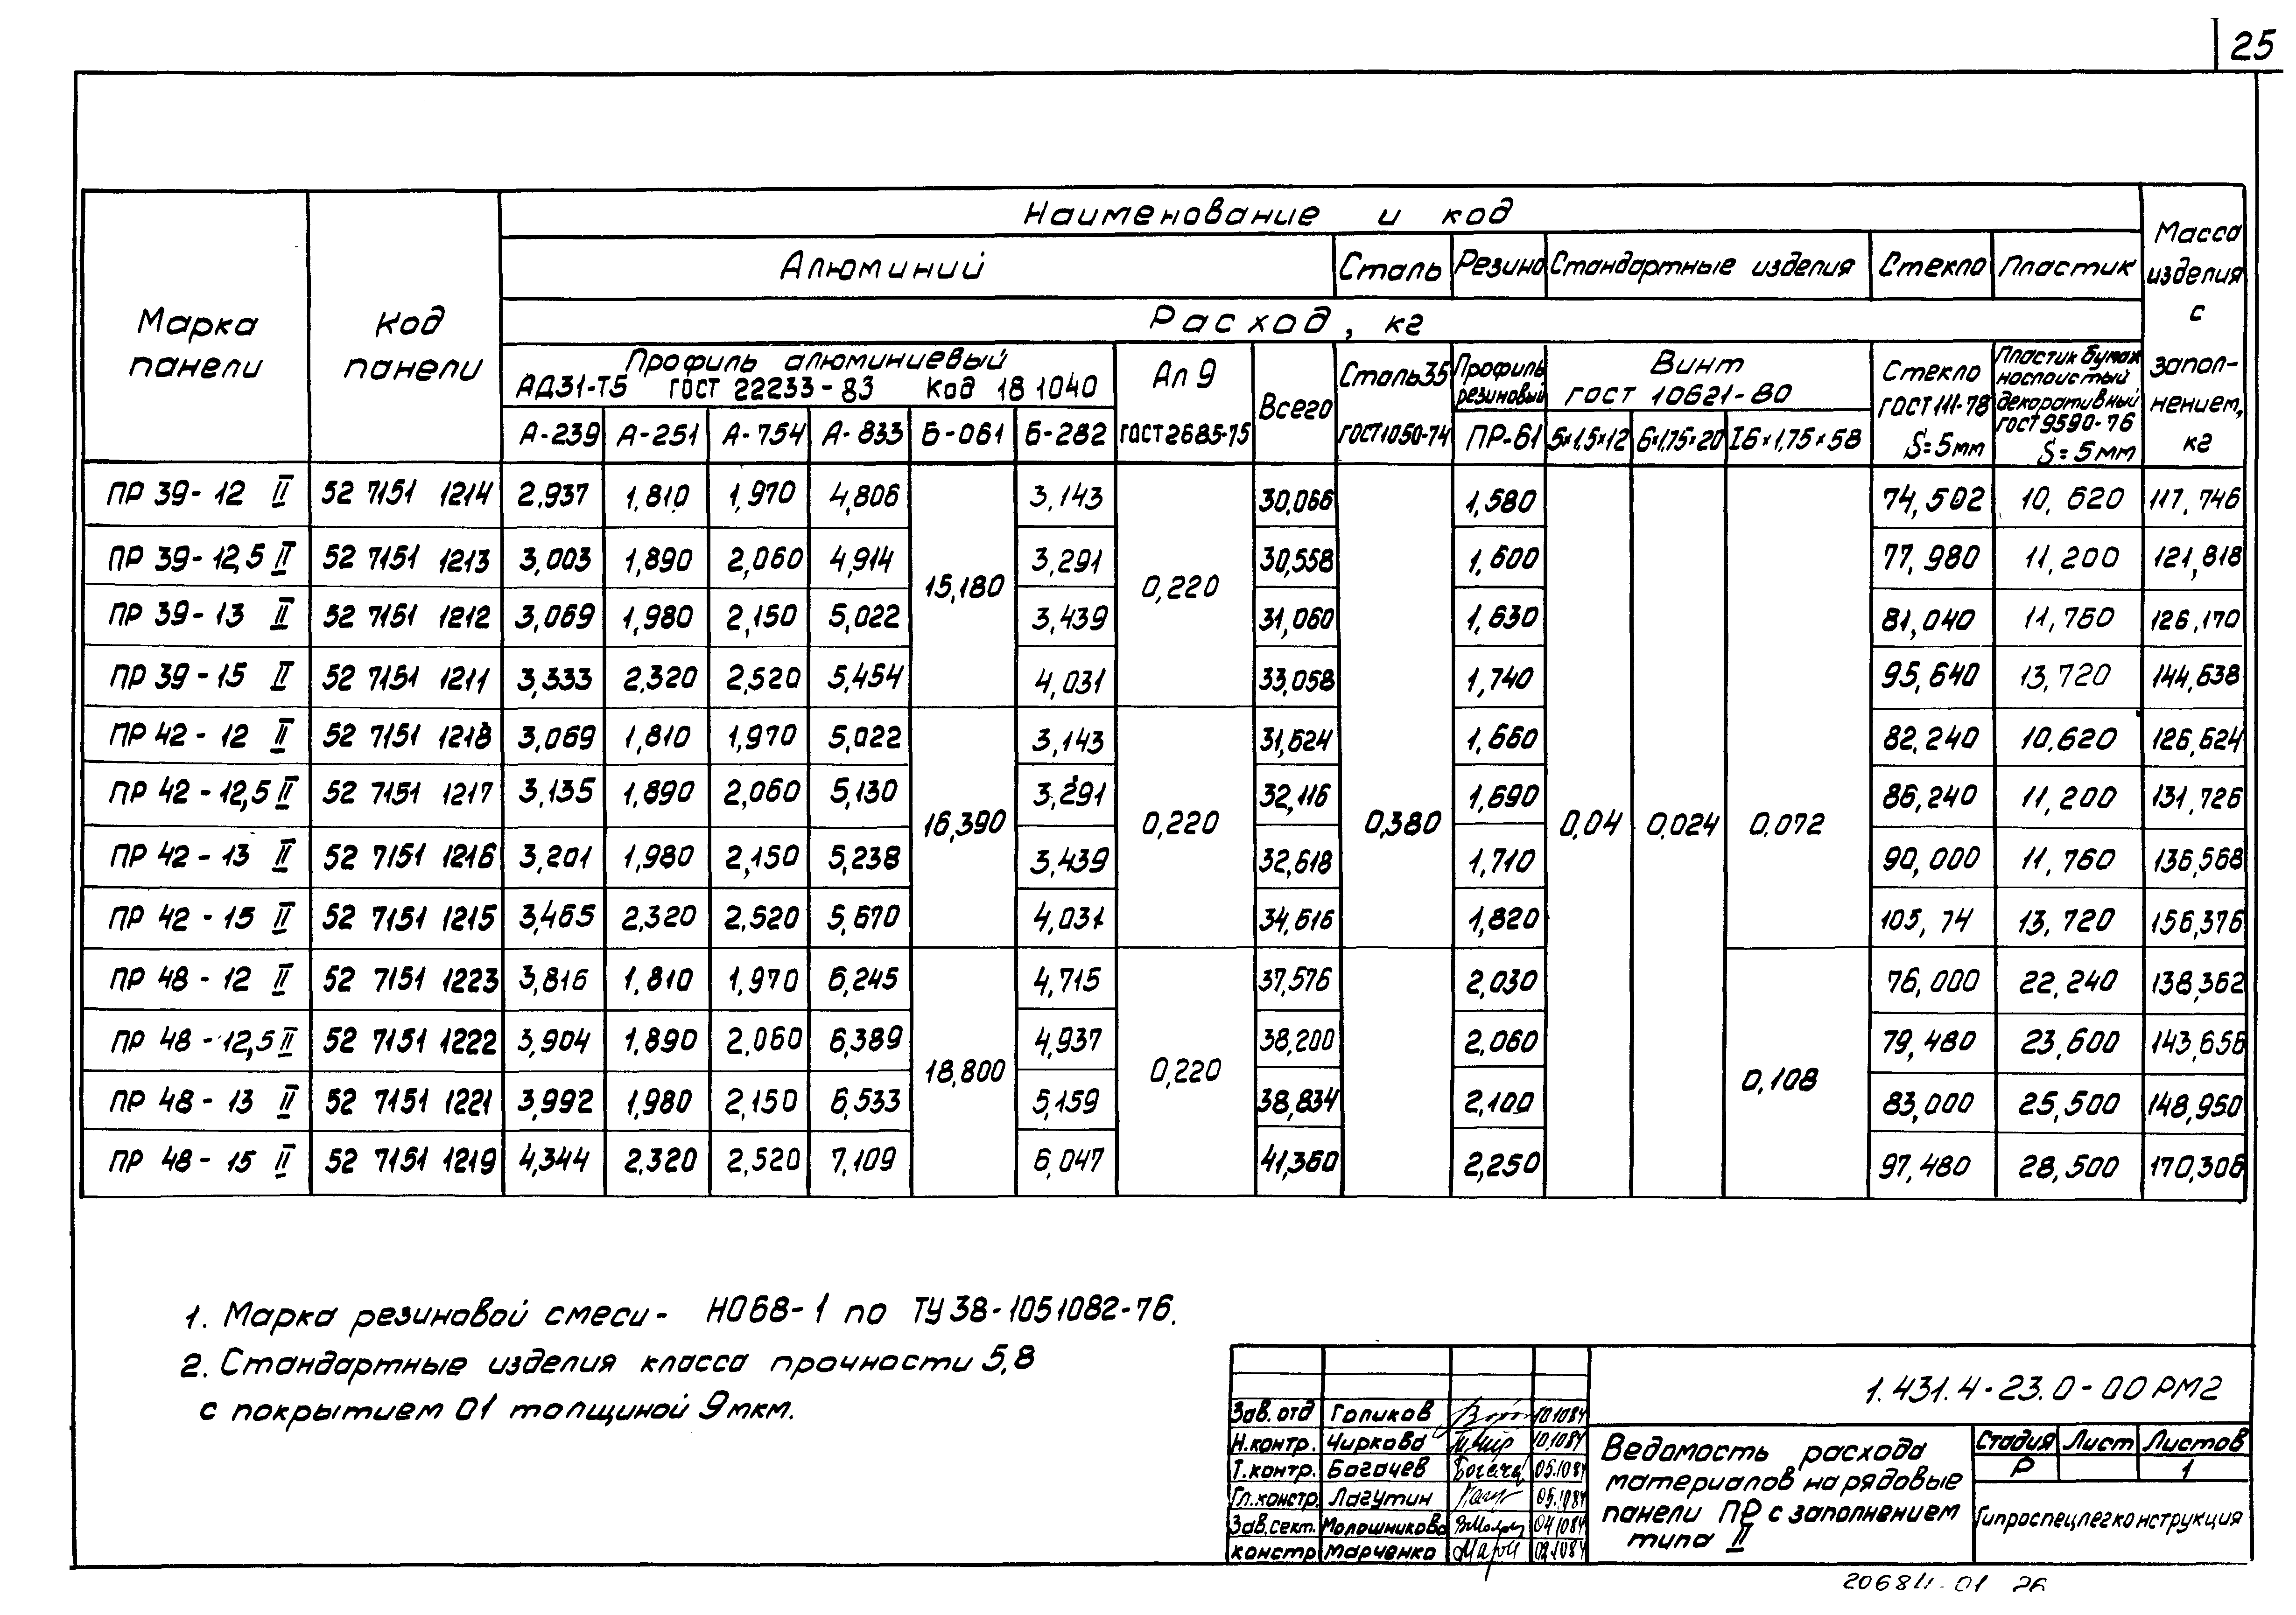 25
Наименование и код
Алюминий Сталь Резина Стандартные изделия Стекло Пластик
Масса изделия с заполнением, кг
Марка панели
Код панели
Расход, кг
Профиль алюминиевый
АД31-Т5 ГОСТ 22233-83 Код 18 1040
Ал 9 ГОСТ 2685-75
Всего
Сталь 35 ГОСТ 1050-74
Профиль резиновый
Винт
ГОСТ 10621-80
Стекло ГОСТ 111-78 S=5мм
Пластик бумажнослоистый декоративный ГОСТ 9590-76 S=5мм
А-239 А-251 А-754 А-833 Б-061 Б-282 ПР-61 5×1,5×12 6×1,75×20 I6×1,75×58
ПР 39-12 II 52 7151 1214 2,937 1,810 1,970 4,806 3,143 30,066 1,580 74,502 10,620 117,746
ПР 39-12,5 II 52 7151 1213 3,003 1,890 2,060 4,914 3,291 30,558 1,600 77,980 11,200 121,818
15,180 0,220
ПР 39-13 II 52 7151 1212 3,069 1,980 2,150 5,022 3,439 31,060 1,630 81,040 11,760 126,170
ПР 39-15 II 52 7151 1211 3,333 2,320 2,520 5,454 4,031 33,058 1,740 95,640 13,720 144,638
ПР 42-12 II 52 7151 1218 3,069 1,810 1,970 5,022 3,143 31,624 1,660 82,240 10,620 126,624
ПР 42-12,5 II 52 7151 1217 3,135 1,890 2,060 5,130 3,291 32,116 1,690 86,240 11,200 131,726
16,390 0,220 0,380 0,04 0,024 0,072
ПР 42-13 II 52 7151 1216 3,201 1,980 2,150 5,238 3,439 32,618 1,710 90,000 11,760 136,568
ПР 42-15 II 52 7151 1215 3,465 2,320 2,520 5,670 4,031 34,616 1,820 105,74 13,720 156,376
ПР 48-12 II 52 7151 1223 3,816 1,810 1,970 6,245 4,715 37,576 2,030 76,000 22,240 138,362
ПР 48-12,5 II 52 7151 1222 3,904 1,890 2,060 6,389 4,937 38,200 2,060 79,480 23,600 143,656
18,800 0,220 0,108
ПР 48-13 II 52 7151 1221 3,992 1,980 2,150 6,533 5,159 38,834 2,100 83,000 25,500 148,950
ПР 48-15 II 52 7151 1219 4,344 2,320 2,520 7,109 6,047 41,360 2,250 97,480 28,500 170,306
1. Марка резиновой смеси - НО68-1 по ТУ 38-1051082-76.
2. Стандартные изделия класса прочности 5,8
с покрытием 01 толщиной 9 мкм.
1.431.4-23.0-00 РМ2
Зав. отд Голиков 10.1084
Н.контр. Чиркова 10.1084
Т.контр. Богачев 05.1084
Гл.констр. Лагутин 05.1084
Зав.сект. Молошникова 04.1084
констр Марченко 02.1084
Ведомость расхода
материалов на рядовые
панели ПР с заполнением
типа II
Стадия Лист Листов
Р 1
Гипроспецлегконструкция
20684-01 26